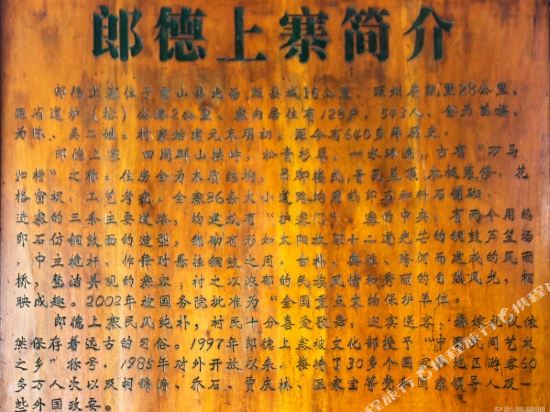 郎德上寨简介
郎德上寨位于雷山县北部，距县城16公里，距州府凯里 公里，
距省道炉（榕）公路2公里，寨内居住有128户，543人，全为苗族，
为陈、吴二姓。村寨始建元末明初，距今有640多年历史。
郎德上寨 四周群山拱峙，松青杉翠，一水环流，古有“万马
归槽”之称。住房全为木质结构，吊脚楼式，青瓦盖顶，木板装修，花
格窗棂，工艺考究。全寨86条大小道路均用鹅卵石和料石铺砌。
进寨的三条主要道路，均建成有“护寨门”。寨的中央，有两个用鹅
卵石仿铜鼓面的造型，铺砌有形如太阳放射十二道光芒的铜鼓芦笙场
，中立桅杆，作择对悬挂铜鼓之用。古朴、典雅、跨河而建成的风雨
桥，整洁美观的寨容，村之以浓郁的民族风情和秀丽的自然风光，相
映成趣。2002年被国务院批准为“全国重点文物保护单位。
郎德上寨民风纯朴，村民十分喜爱歌舞，迎宾送客，
然保存着远古的习俗。1997年郎德上寨被文化部授予“中国民间艺术
之乡”称号，1985年对外开放以来，接待了30多个国家、地区游客60
多万人次以及胡锦涛、乔石、贾庆林、温家宝等党和国家领导人及一
些外国政要。
携程旅行
携程旅行